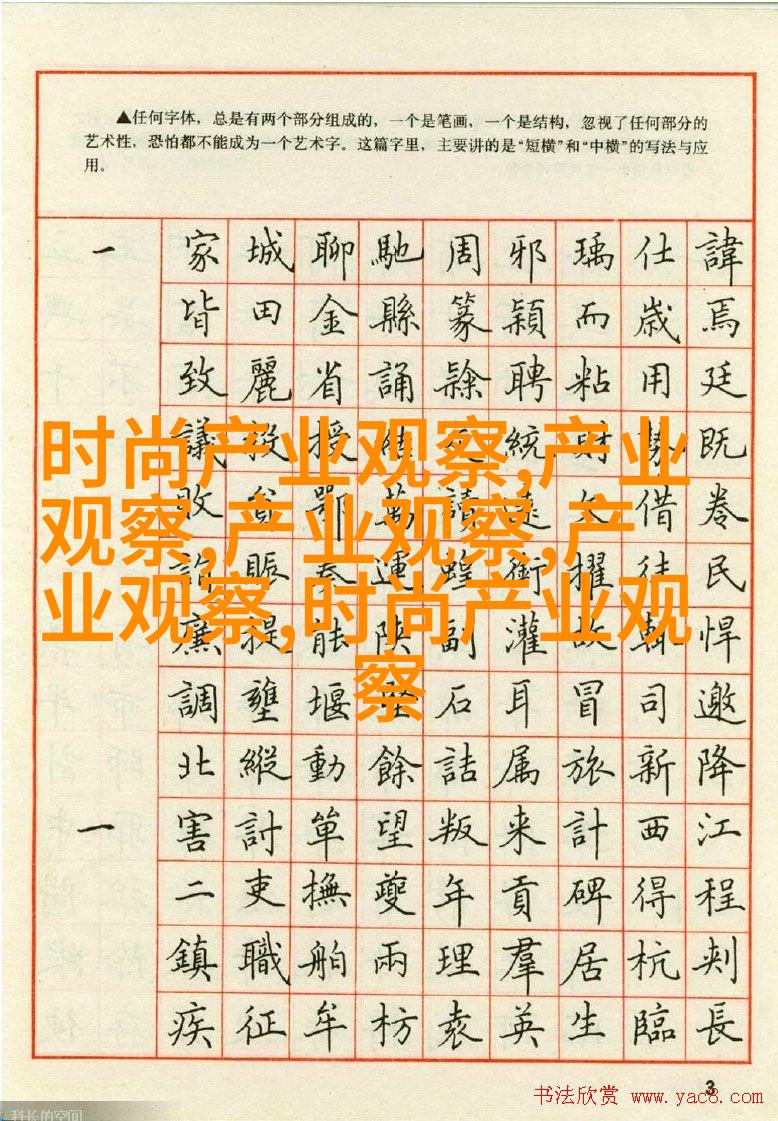 ▲任何字体，总是有两个部分组成的，一个是笔画，一个是结构，忽视了任何部分的
艺术性，恐怕都不能成为一个艺术字。这篇字里，主要讲的是“短横”和“中横”的写法与应
用。
一 家 城 聊 馳 周 邪 瑀 仕 諱
皆 田 金 縣 篆 穎 而 歲 焉
致 麗 省 誦 聘 粘 用 廷
議 投 授 統 財 既
敗 鄂 萬 讀 遠 借 卷
賑 奏 運 蝗 銜 擢 徒 民
廉 提 能 陝 副 灌 故 悍
調 壅 堰 石 耳 冒 司 邀
北 縱 動 餘 詰 属 旅 新 降
一 害 討 單 望 叛 来 計 西 江
二 吏 撫 夔 年 貢 碑 得 程
鎮 職 舶 兩 理 羣 居 杭 刺
疾 征 牟 枋 袁 英 生 臨 長
时尚产业观察,产业
观察,产业观察,产
业观察,时尚产业观
察
3
书法欣赏 www.yac8.com
科长的空间